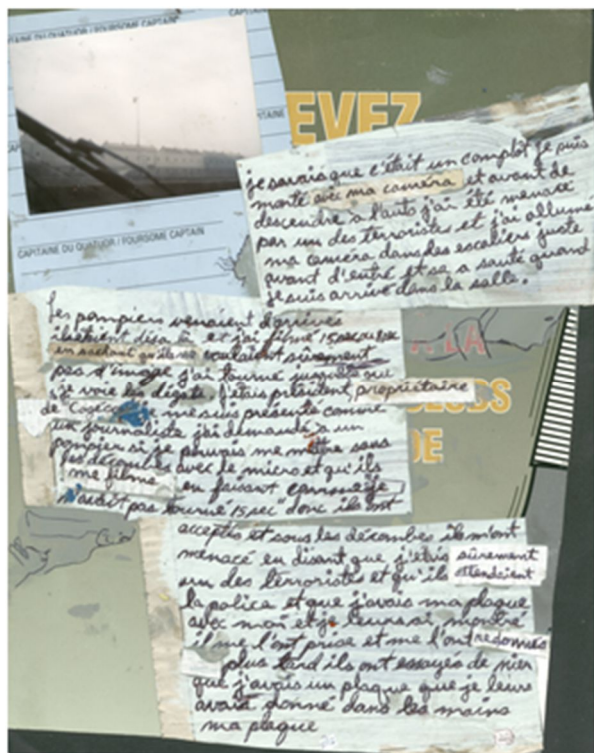 CAPITAINE DU QUATUOR / FOURSOME CAPTAIN
CAPITAINE DU QUATUOR / FOURSOME CAPTAIN
EVEZ
je savais que c'était un complot je suis
monté avec ma caméra et avant de
descendre a l'auto j'ai été menacé
par un des terroristes et j'ai allumé
ma caméra dans des escaliers juste
avant d'entré et sa a sauté quand
je suis arrivé dans la salle.
Les pompiers venaient d'arrivés
ils étaient déja là et j'ai filmé 15 sec
en sachant qu'ils ne voulaient sûrement
pas d'image j'ai tourné jusqu'a que
je voie les dégats j'étais président, propriétaire
de Cogeco je me suis présenté comme
un journaliste j'ai demandé a un
pompier si je pouvais me mettre sous
les décombres avec le micro et qu'ils
me filme en faisant comme si je
n'avait pas tourné 15 sec donc ils ont
À LA
CLUBS
DE
acceptés et sous les décombes ils m'ont
menacé en disant que j'étais sûrement
un des terroristes et qu'ils attendaient
la police et que j'avais ma plaque
avec moi et je leurs ai montré
il me l'ont prise et me l'ont redonnés
plus tard ils ont essayés de nier
que j'avais un plaque que je leurs
avais donné dans les mains
ma plaque